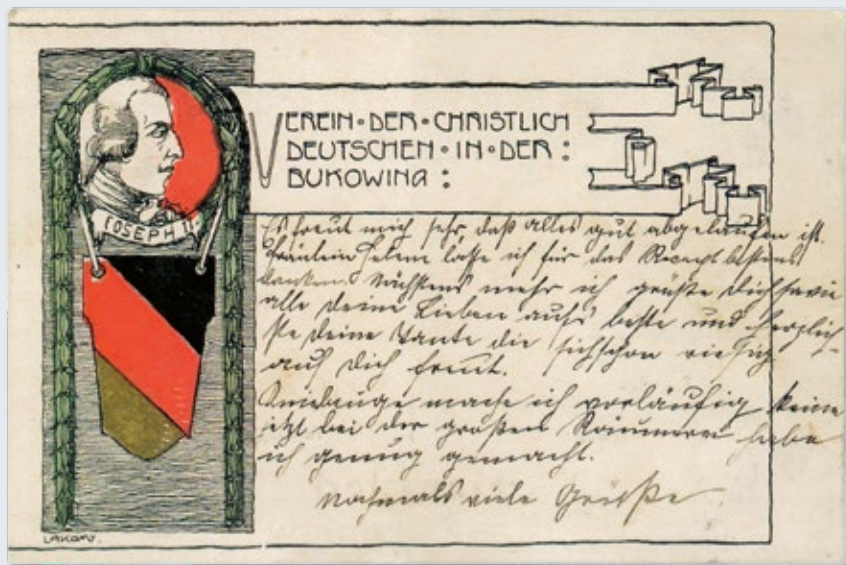 VEREIN · DER · CHRISTLICH
DEUTSCHEN · IN · DER :
BUKOWINA :
IOSEPH II.
Es freut mich sehr daß alles gut abgelaufen ist.
Fräulein Helene lasse ich für das Rezept bestens
danken. Nächstens mehr ich grüße Dich sowie
alle Deine Lieben aufs beste und herzlich-
ste Deine Tante die sich schon riesig
auf Dich freut.
Kniebeuge mache ich vorläufig keine
jetzt bei der großen Räumerei habe
ich genug gemacht.
Nochmals viele Grüße.
LAKOMY.